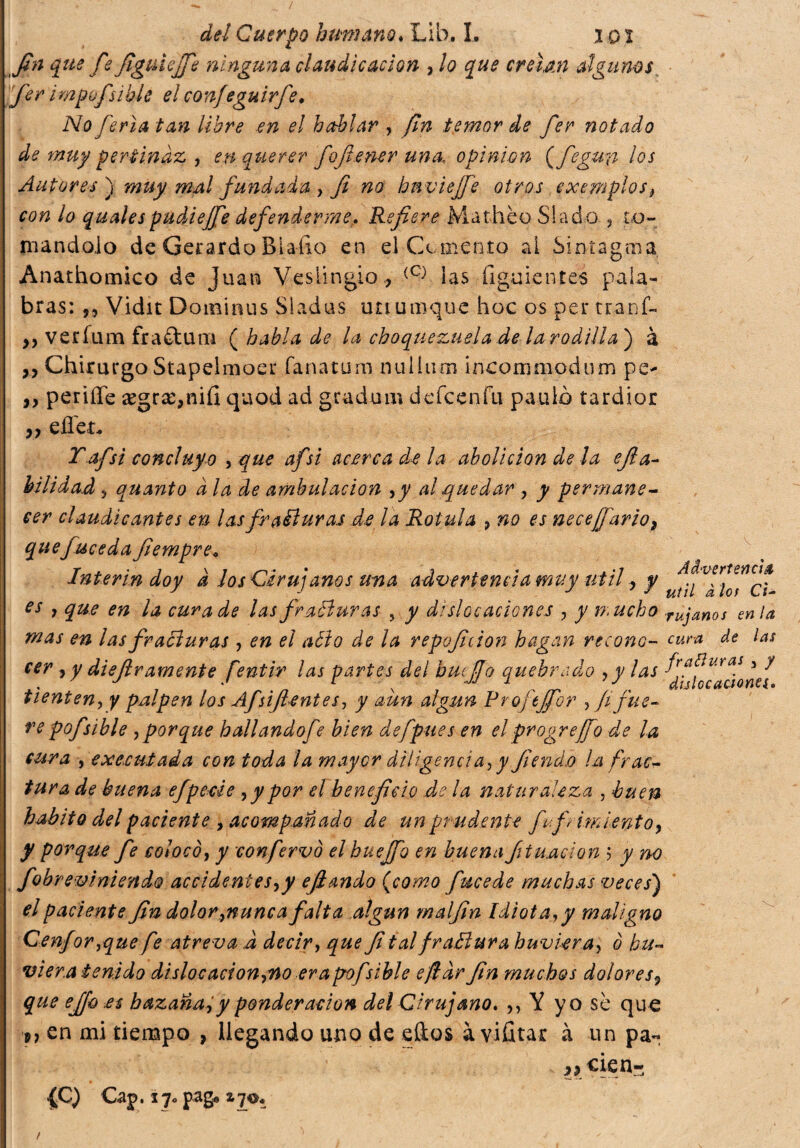 del Cuerpo humano. Lib. I. 101
fin que ſe ſiguieſſe ninguna claudicacion, lo que creìan algunos
ſer impoſsible el conſeguirſe.
No ſerìa tan libre en el hablar, ſin temor de ſer notado
de muy pertinàz, en querer ſoſtener una opinion (ſegun los
Autores) muy mal fundada, ſi no huvieſſe otros exemplos,
con lo quales pudieſſe defenderme. Refiere Mathèo Slado, to-
mandolo de Gerardo Blaſio en el Comento al Sintagma
Anathomico de Juan Veslingio, (C) las ſiguientes pala-
bras: ,, Vidit Dominus Sladus unumque hoc os per tranſ-
,, verſum fractum (habla de la choquezuela de la rodilla) à
,, Chirurgo Stapelmoer ſanatum nullum incommodum pe-
,, periſſe ægræ, niſi quod ad gradum deſcenſu paulò tardior
,, eſſet.
Y aſsi concluyo, que aſsi acerca de la abolicion de la eſta-
bilidad, quanto à la de ambulacion, y al quedar, y permane-
cer claudicantes en las fracturas de la Rotula, no es neceſſario,
que ſuceda ſiempre.
Interin doy à los Cirujanos una advertencia muy util, y
es, que en la cura de las fracturas, y dislocaciones, y mucho
mas en las fracturas, en el acto de la repoſicion hagan recono-
cer, y dieſtramente ſentir las partes del hueſſo quebrado, y las
tienten, y palpen los Aſsiſtentes, y aùn algun Profeſſor, ſi fue-
re poſsible, porque hallandoſe bien deſpues en el progreſſo de la
cura, executada con toda la mayor diligencia, y ſiendo la frac-
tura de buena eſpecie, y por el beneficio de la naturaleza, buen
habito del paciente, acompañado de un prudente ſufrimiento,
y porque ſe colocò, y conſervò el hueſſo en buena ſituacion; y no
ſobreviniendo accidentes, y eſtando (como ſucede muchas veces)
el paciente ſin dolor, nunca falta algun malſin Idiota, y maligno
Cenſor, que ſe atreva à decir, que ſi tal fractura huviera, ò hu-
viera tenido dislocacion, no era poſsible eſtàr ſin muchos dolores,
que eſſo es hazaña, y ponderacion del Cirujano. ,, Y yo sè que
,, en mi tiempo, llegando uno de eſtos à viſitar à un pa-
,, cien-
Advertencia
util à los Ci-
rujanos en la
cura de las
fracturas, y
dislocaciones.
(C) Cap. 17. pag. 270.